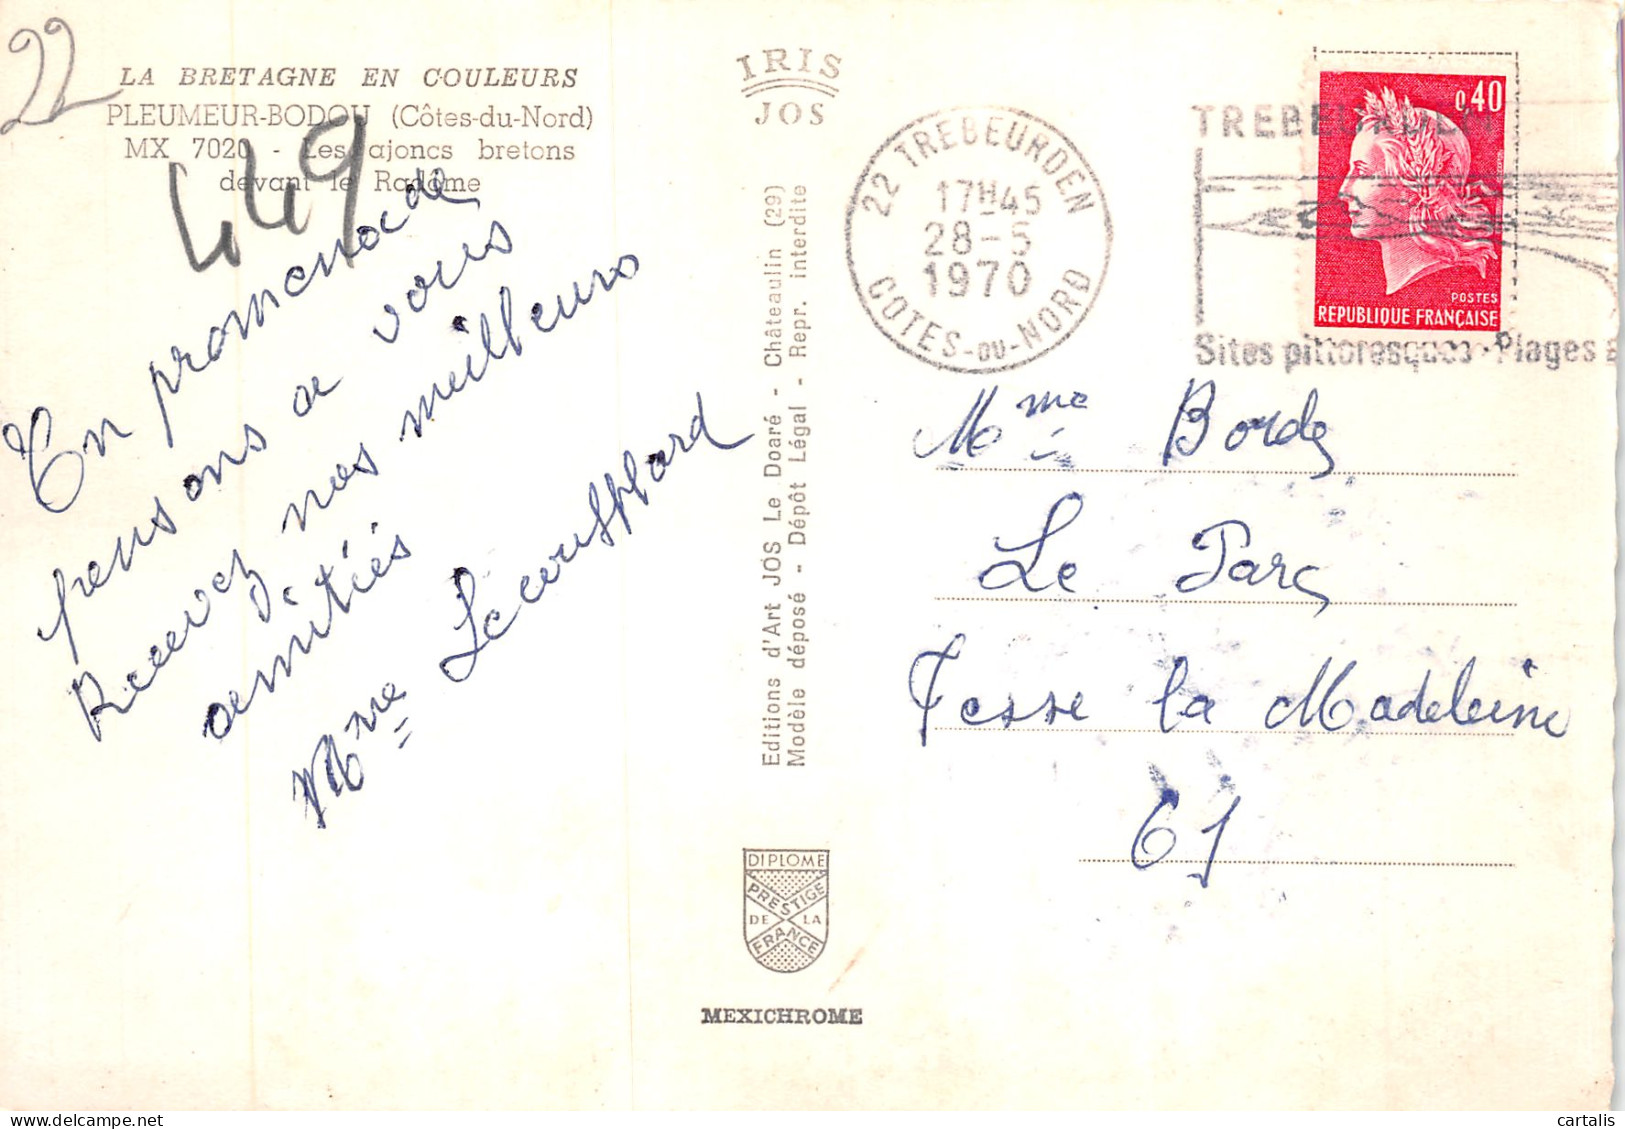 22
LA BRETAGNE EN COULEURS
PLEUMEUR-BODOU (Côtes-du-Nord)
MX 7020 - Les ajoncs bretons
devant le Radôme
449
En promenade
pensons a vous
Recevez nos meilleurs
amitiés
Mme
IRIS
JOS
Editions d'Art JOS Le Doaré - Châteaulin (29)
Modèle déposé - Dépôt Légal - Repr. interdite
DIPLOME
PRESTIGE
DE LA
FRANCE
MEXICHROME
22 TREBEURDEN
17H45
28-5
1970
COTES-DU-NORD
TREBEURDEN
Sites pittoresques - Plages
0,40
POSTES
REPUBLIQUE FRANÇAISE
Mme Borde
Le Parc
Tesse la Madeleine
61
cartalis